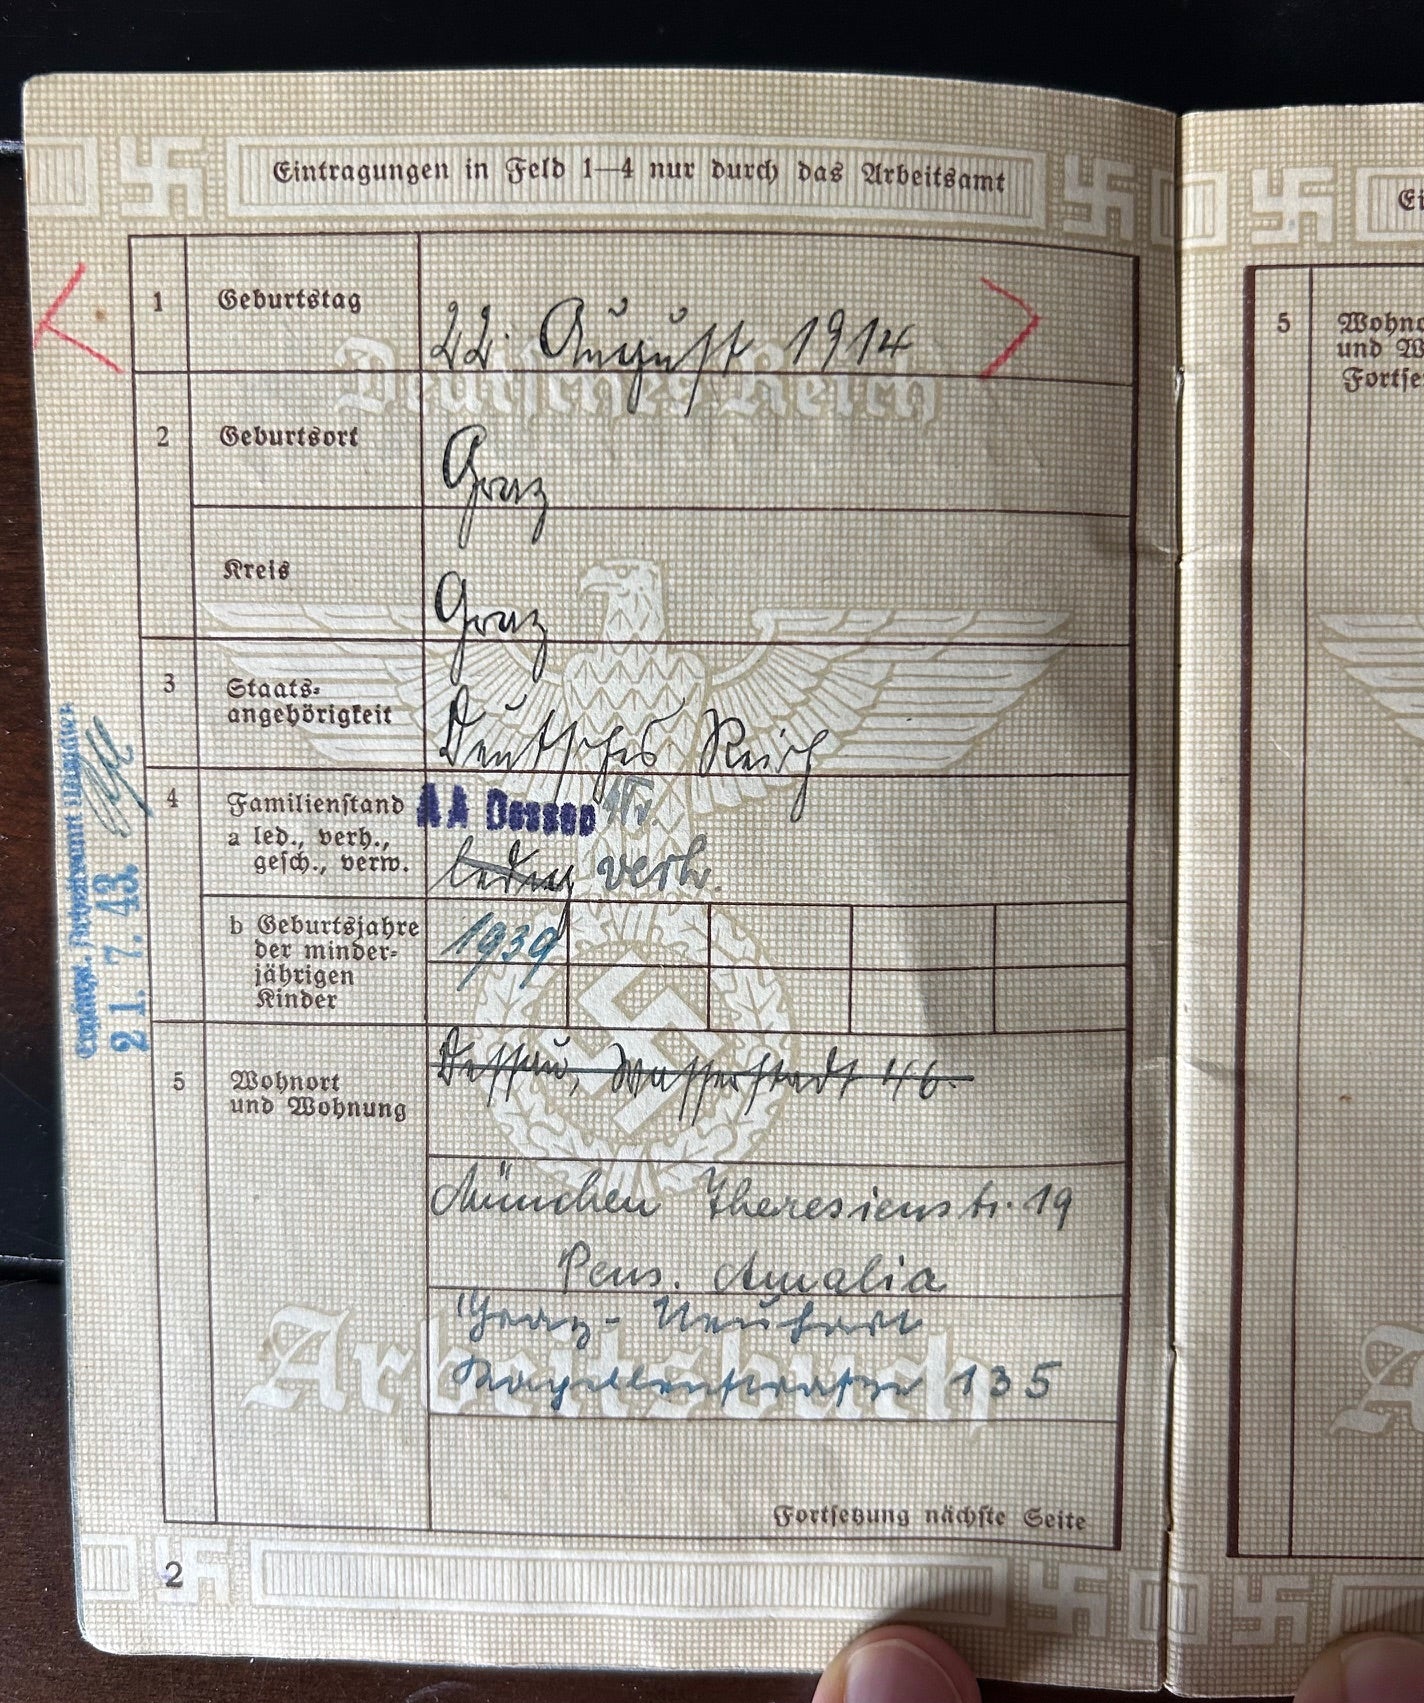 Eintragungen in Feld 1—4 nur durch das Arbeitsamt
1 Geburtstag 22. August 1914
Deutsches Reich
2 Geburtsort Graz
Kreis Graz
3 Staats-
angehörigkeit Deutsches Reich
4 Familienstand AA Dessau
a led., verh.,
gesch., verw. ledig verh.
b Geburtsjahre 1939
der minder-
jährigen
Kinder
21. 7. 43
5 Wohnort Dessau, Wasserstadt 46.
und Wohnung
München Theresienstr. 19
Pens. Amalia
Graz-
135
Arbeitsbuch
Fortsetzung nächste Seite
2
Ei
5 Wohno
und W
Fortse
A